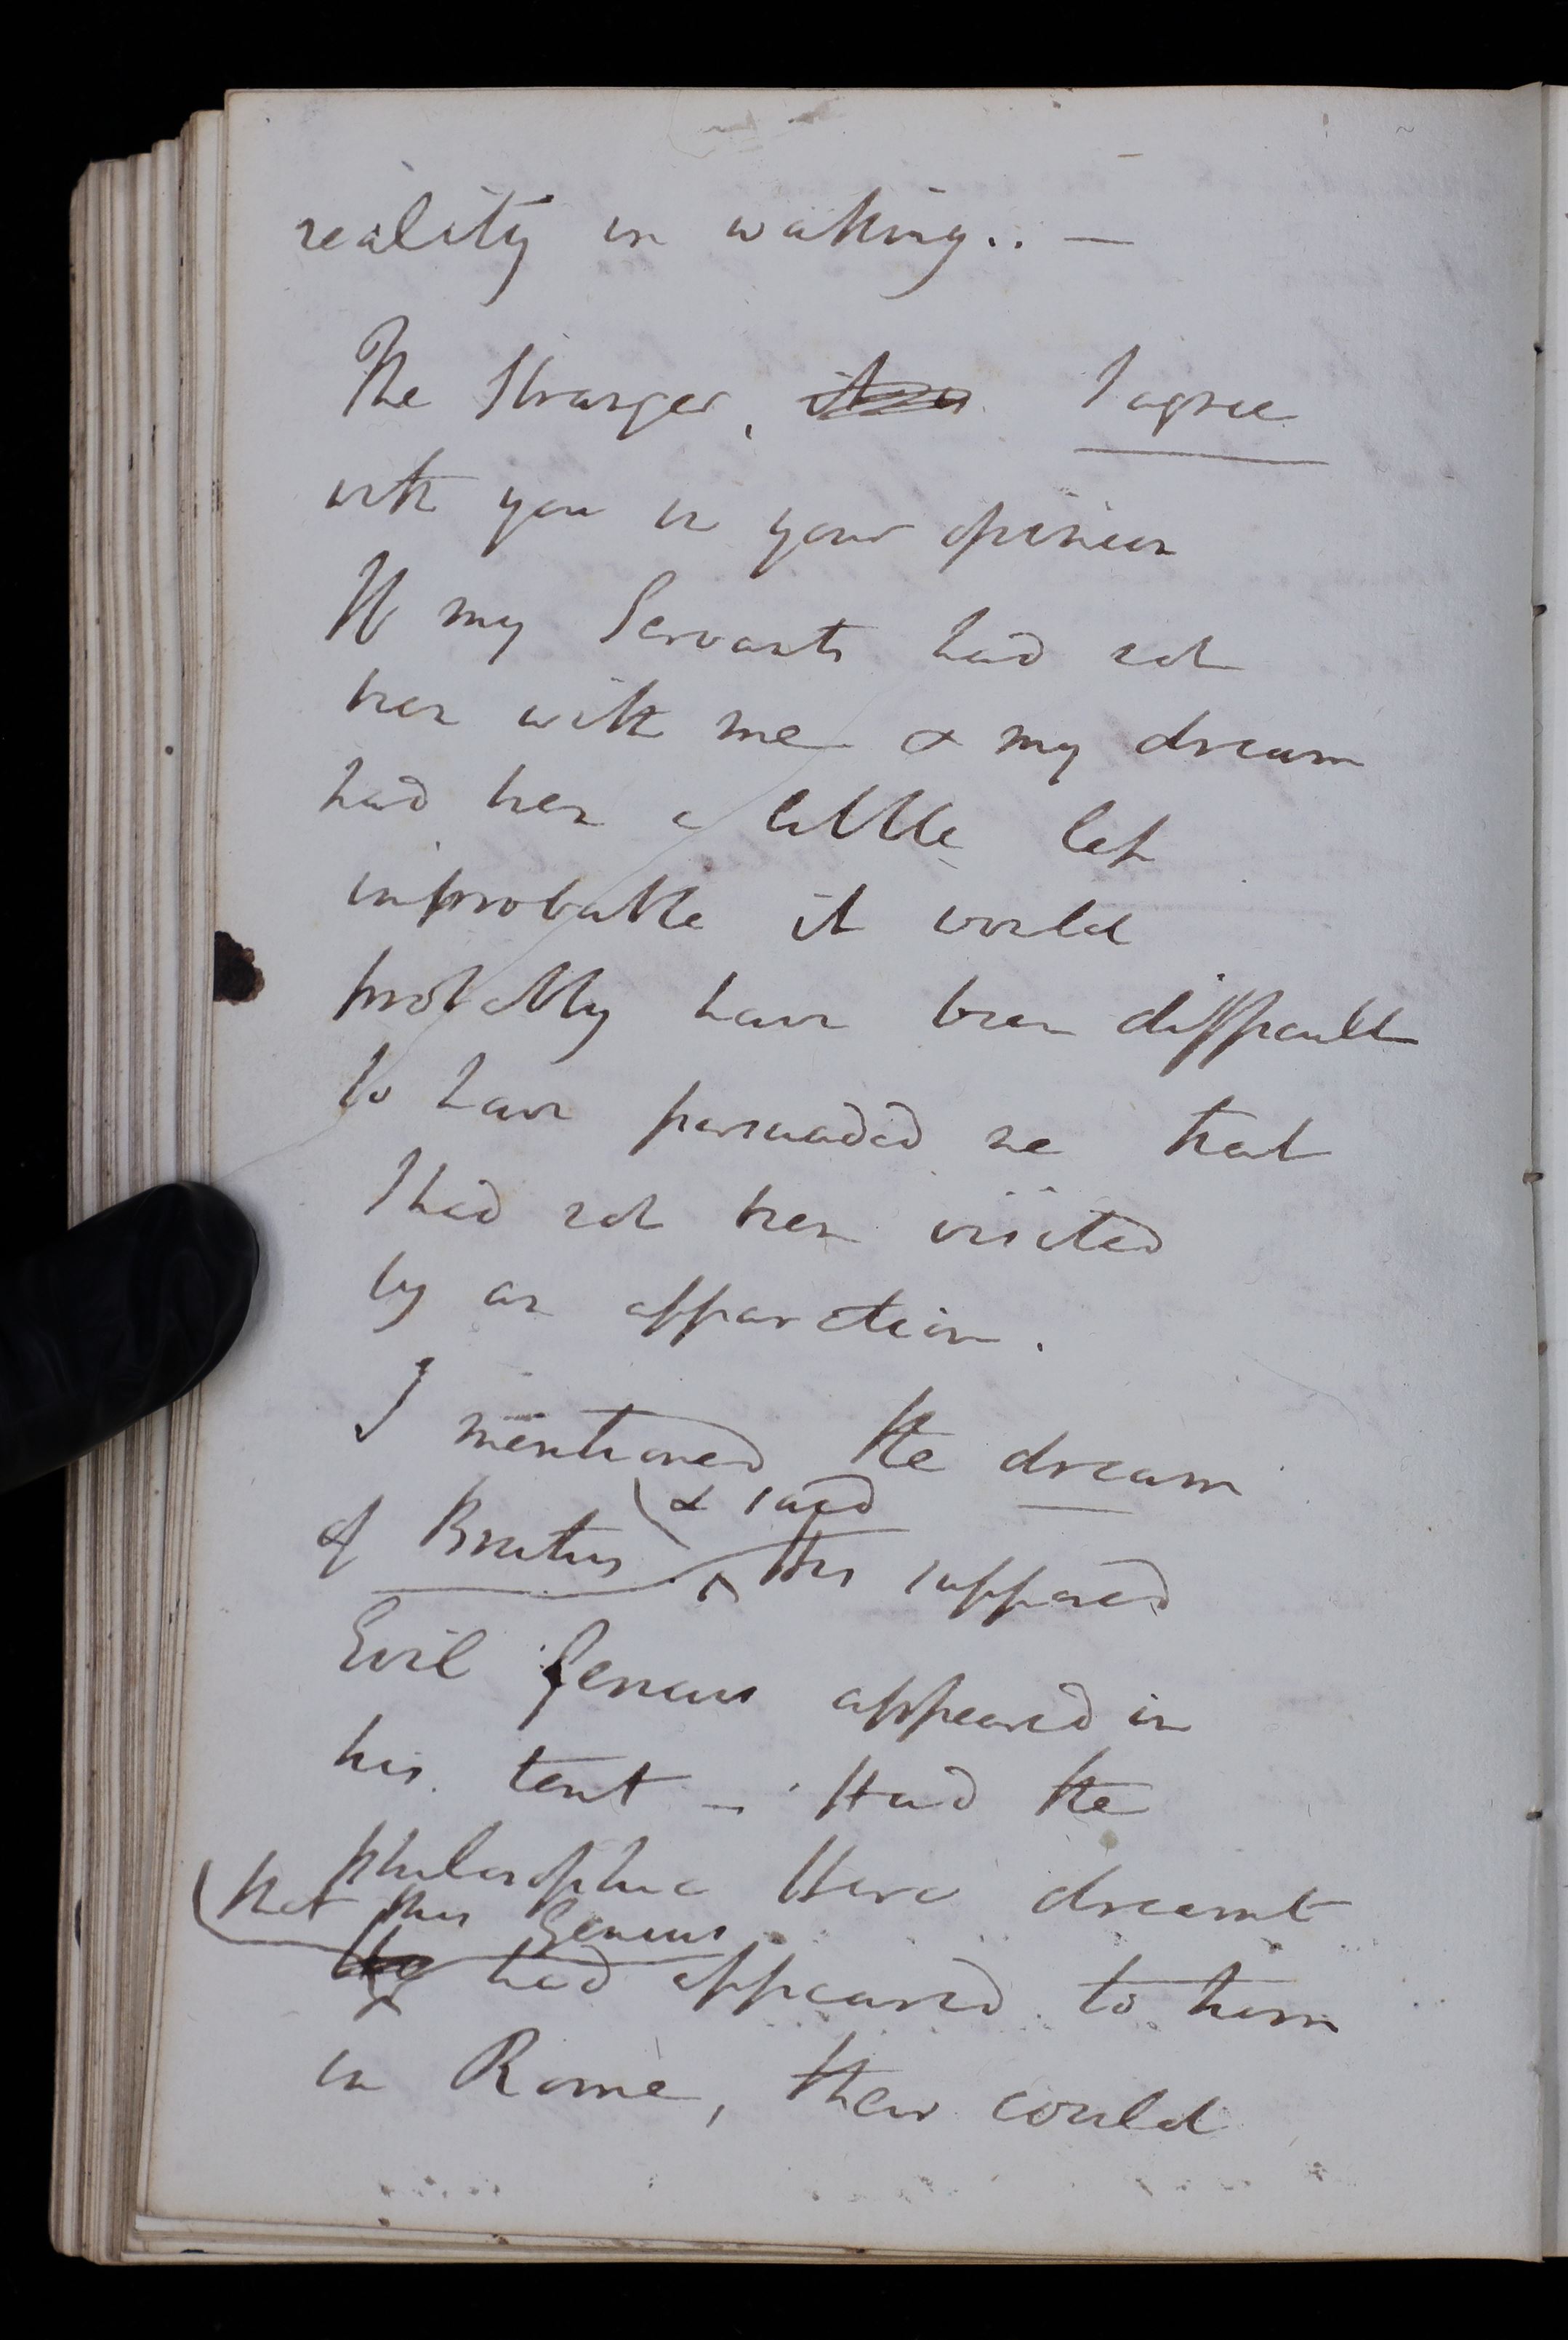 reality in waking.. —
The Stranger, I agree
with you in your opinion
If my Servants had not
been with me & my dream
had been a little less
improbable it would
probably have been difficult
to have persuaded me that
I had not been visited
by an apparition.
I mentioned the dream
& said
of Brutus his supposed
Evil Genius appeared in
his tent — Had the
philosophic Hero dreamt
that this Genius
had appeared to him
in Rome, there could